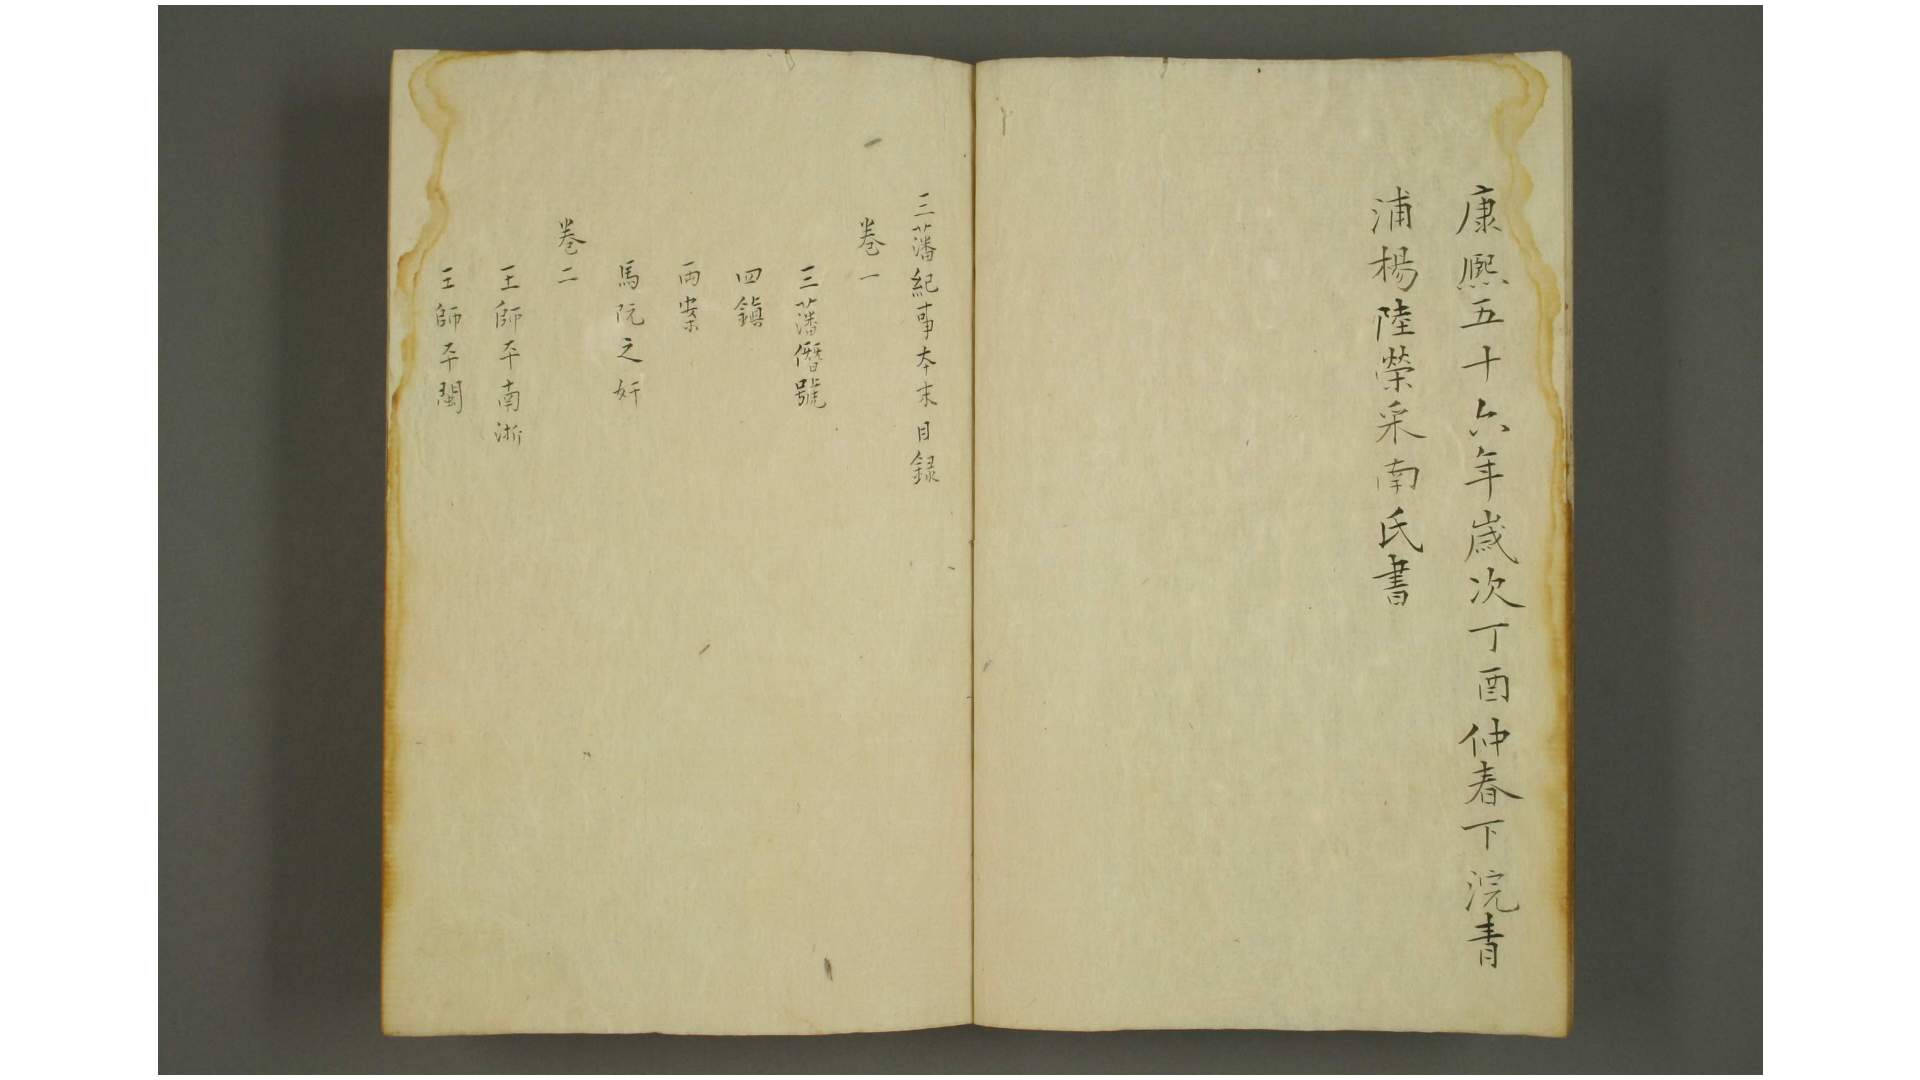 康熙五十六年歲次丁酉仲春下浣青
浦楊陸榮采南氏書
三藩紀事本末目録
卷一
三藩僭號
四鎮
兩案
馬阮之奸
卷二
王師平南浙
王師平閩